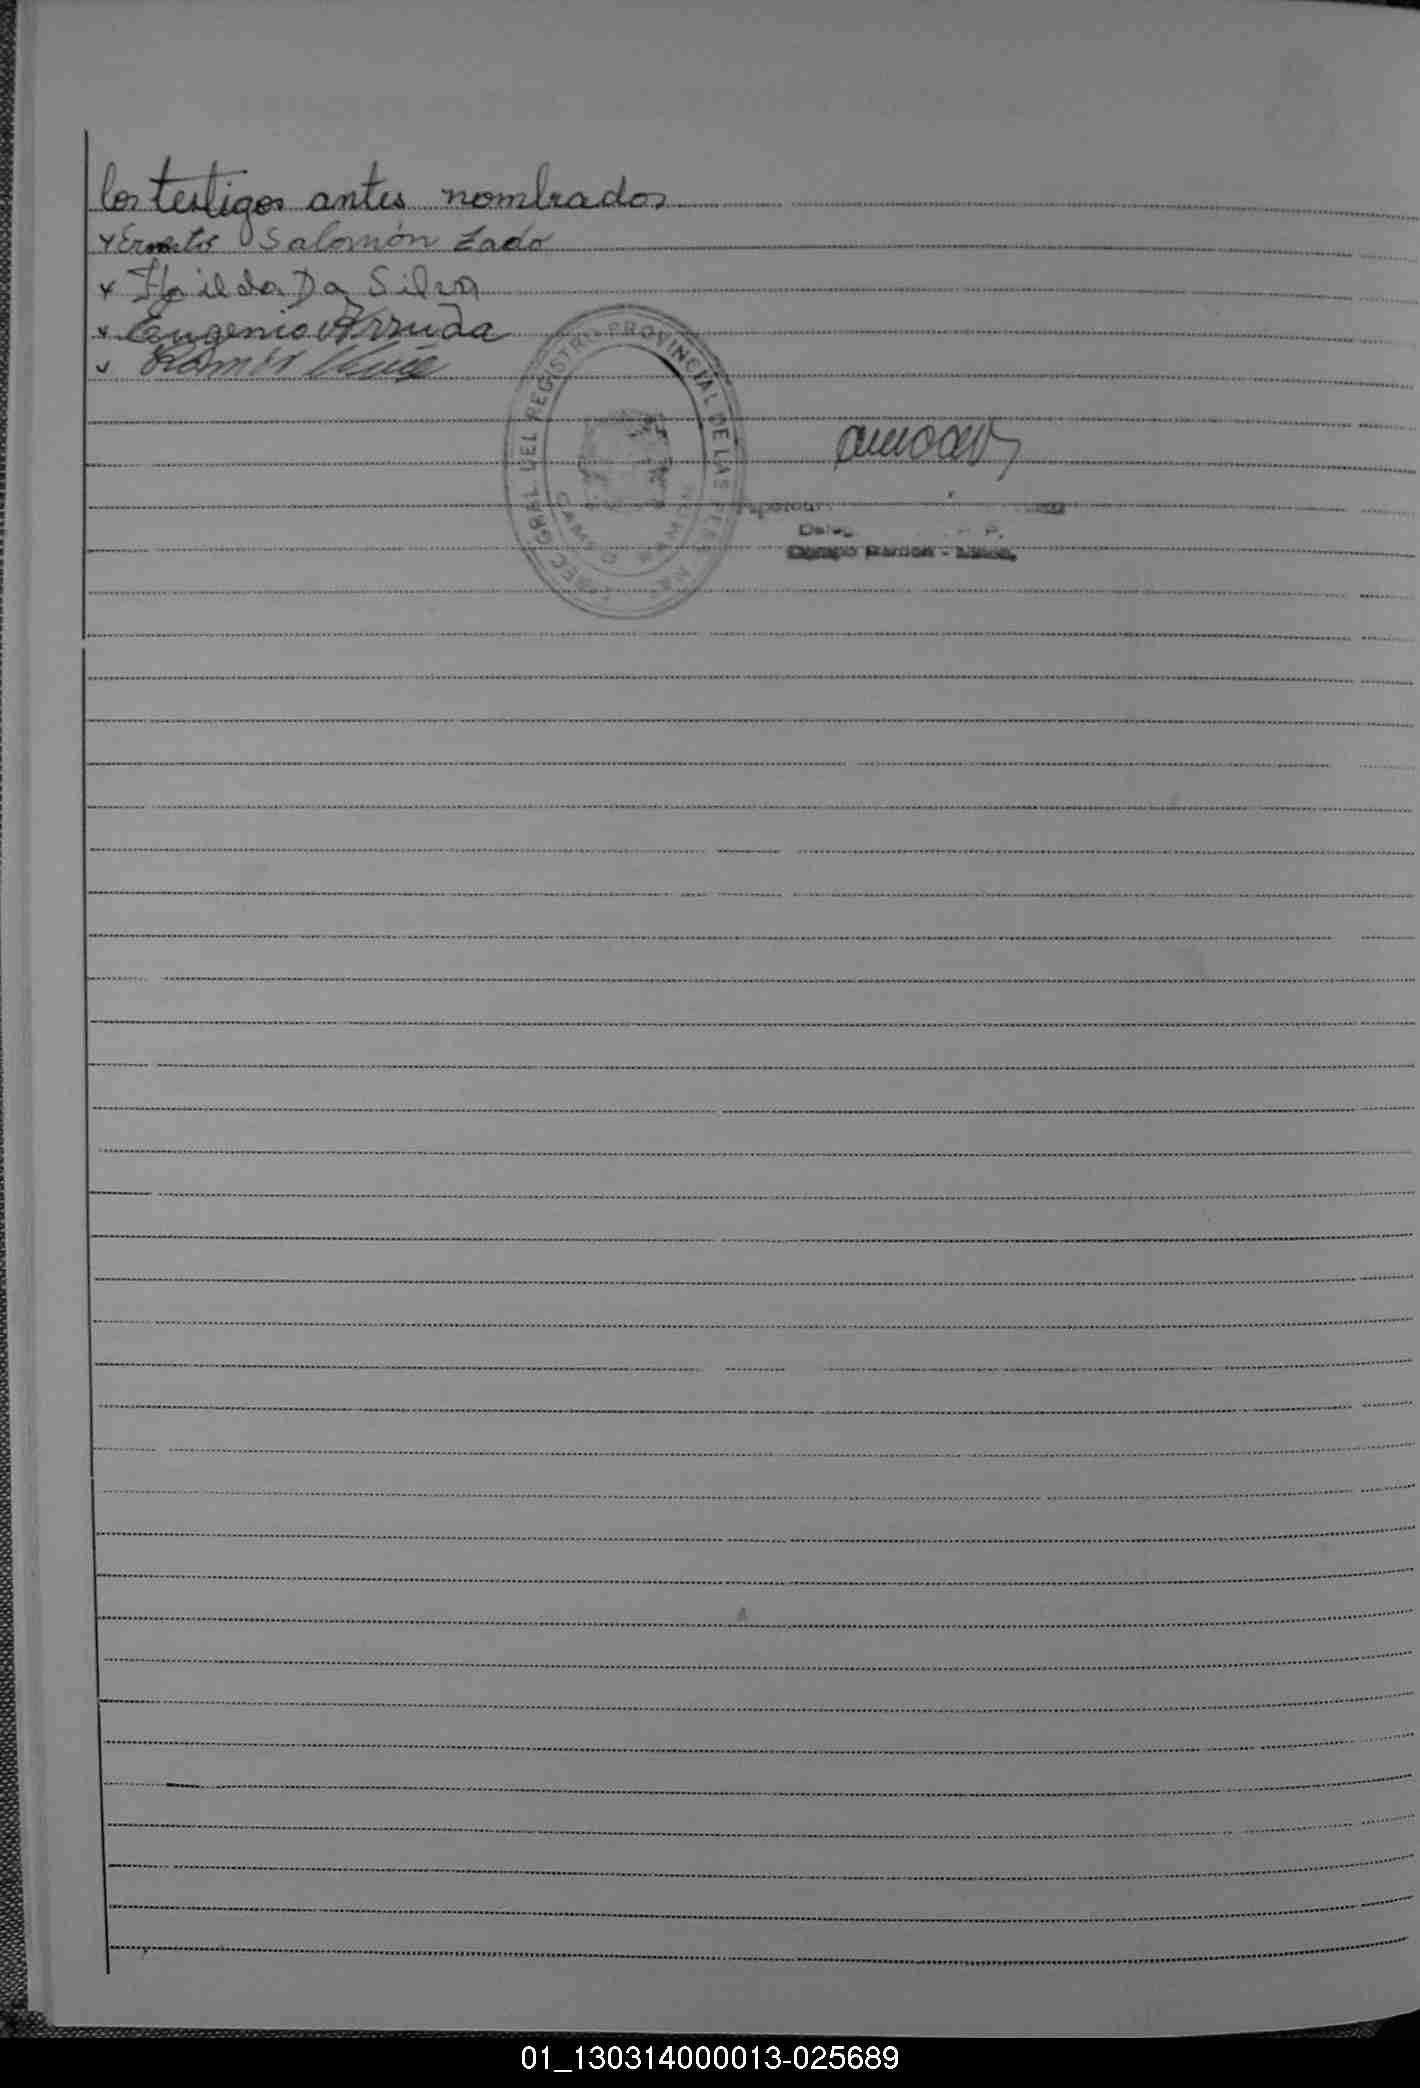 los testigos antes nombrados
x Ernesto Salomón Lado
x Da Silva
x Eugenio Arruda
x Ramón
DIREC. GRAL DEL REGISTRO PROVINCIAL DE LAS PERSONAS
CAMPO RAMON
Campo Ramón - Mnes.
01_130314000013-025689